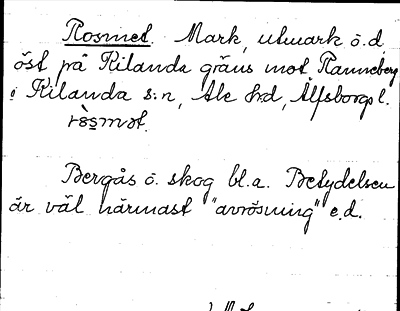 Rosmet. Mark, utmark ö.d.
öst på Kilanda gräns mot Ranneberg
i Kilanda s:n, Ale h:d, Älfsborgs l.
Bergås ö. skog bl.a. Betydelsen
är väl närmast "avrösning" e.d.